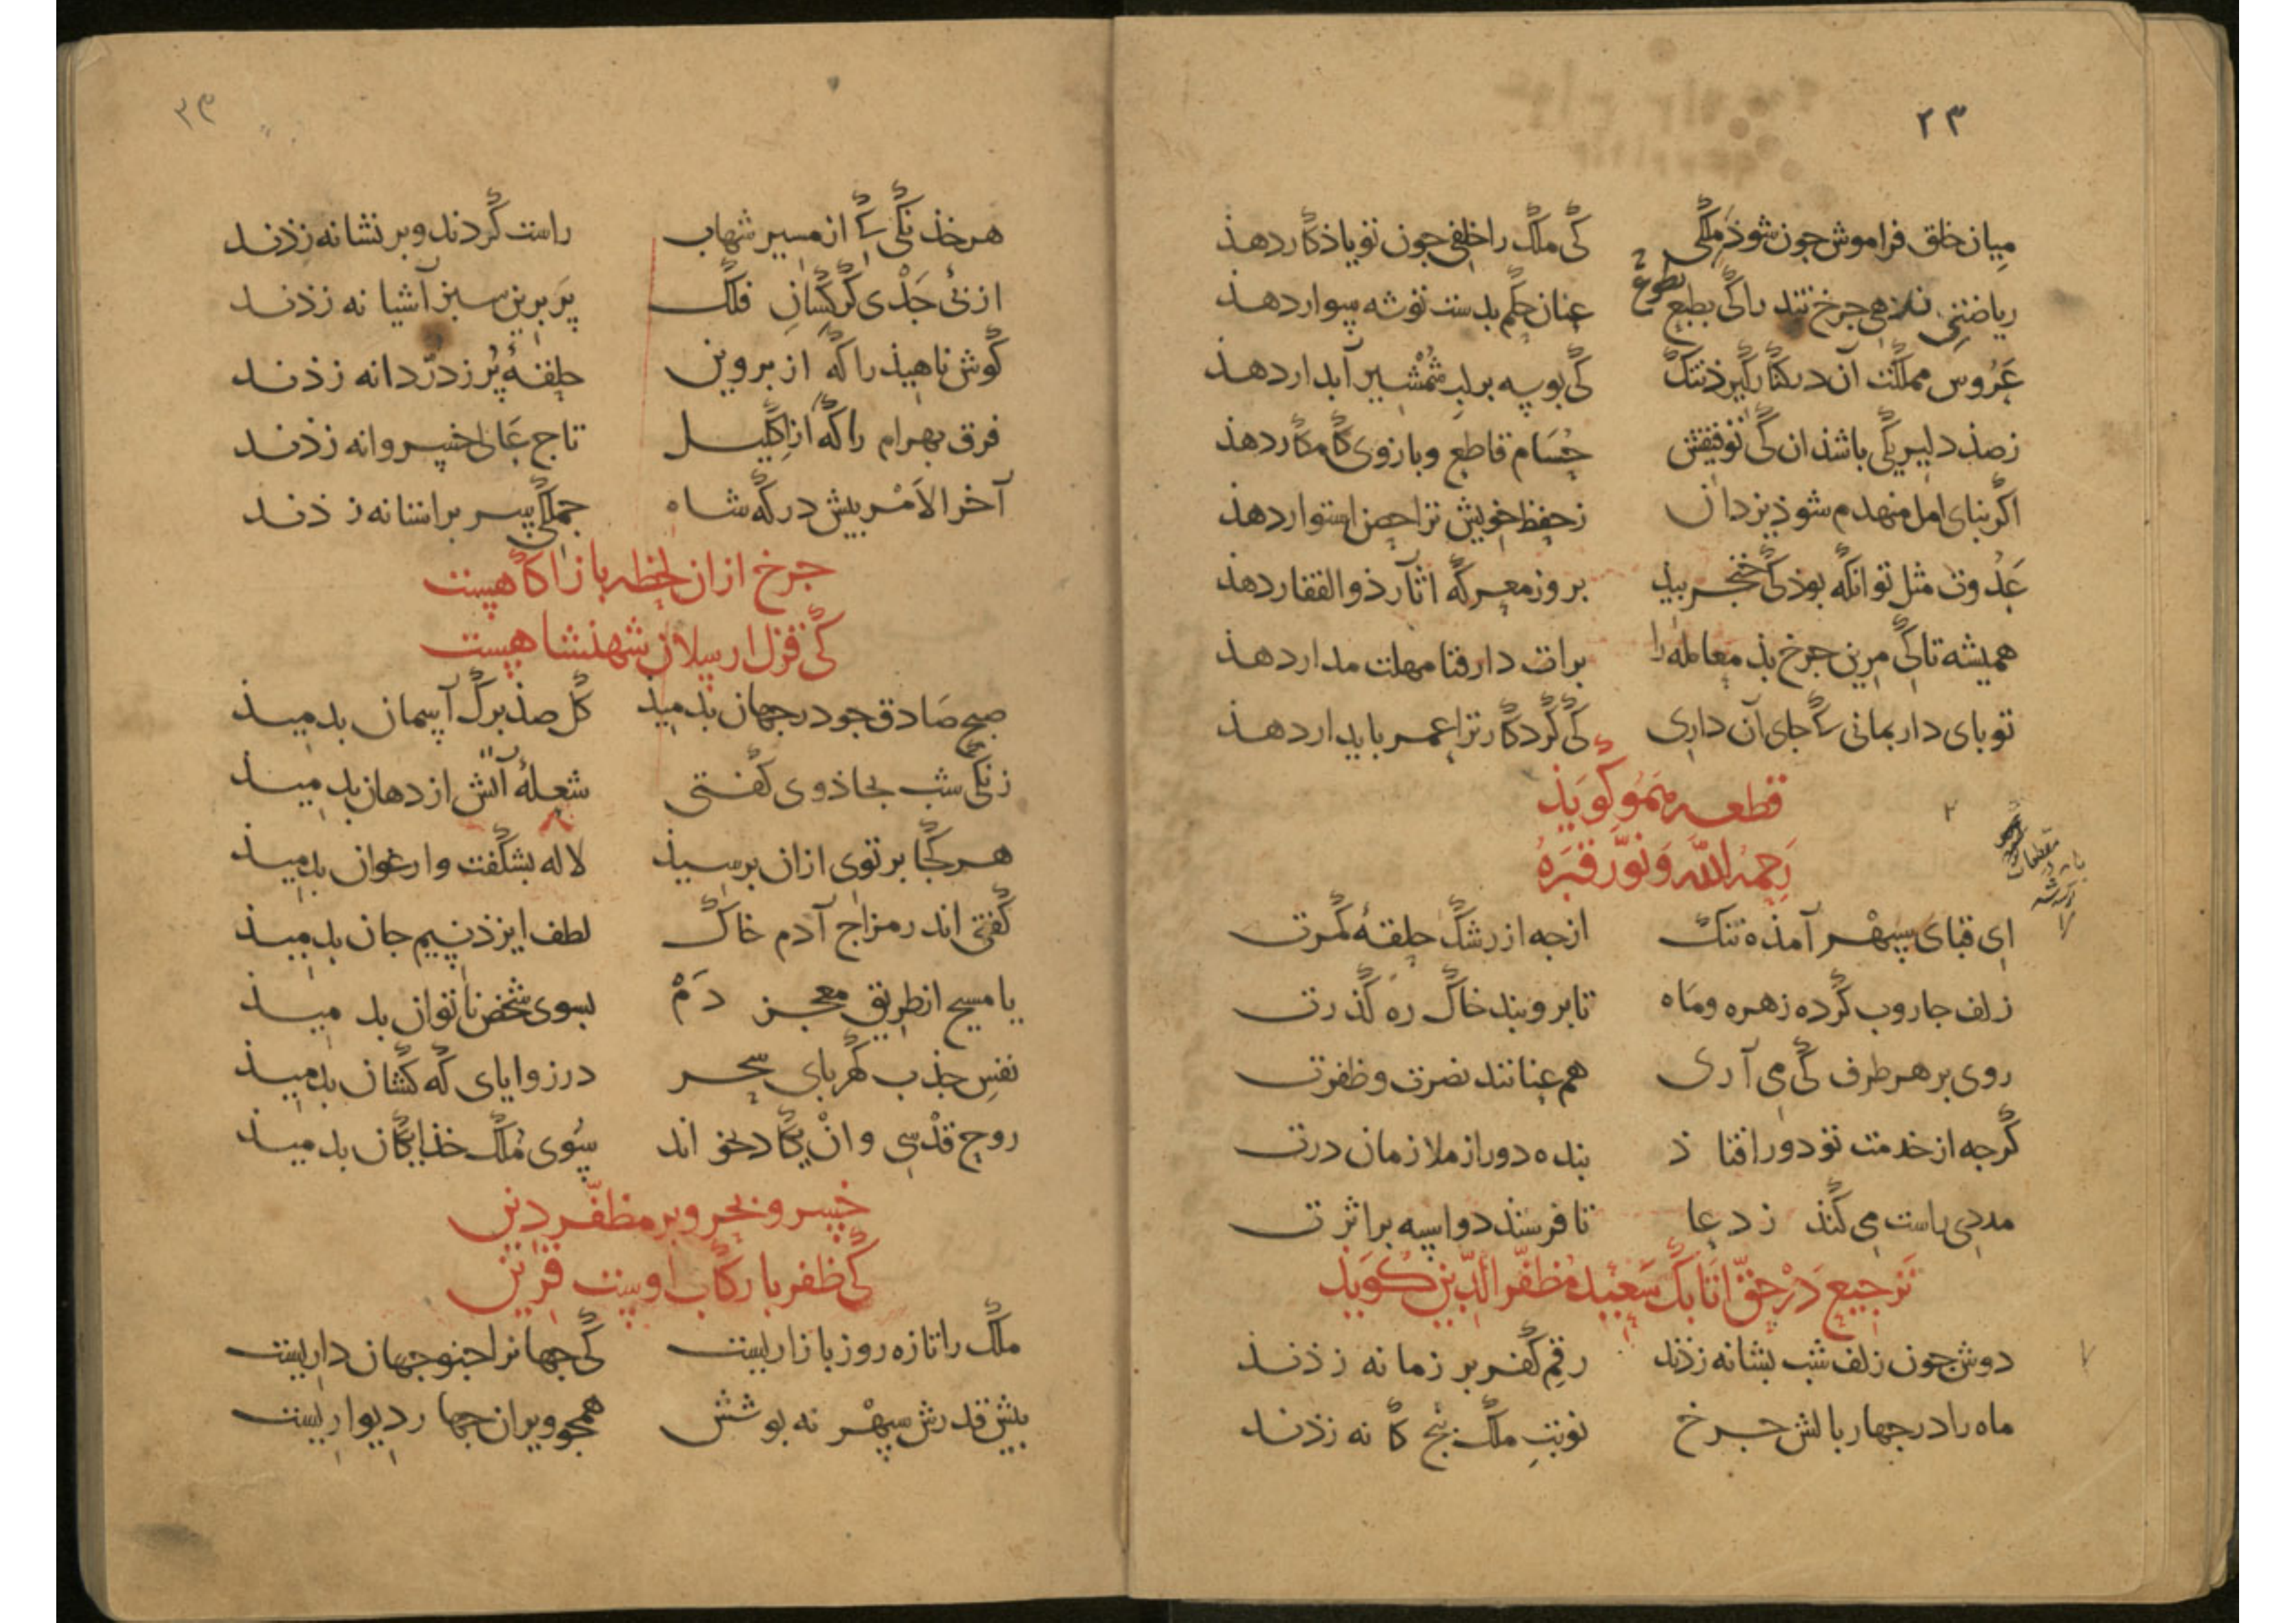 ۲۳
میان خلق فراموش جون شوذ ملکی کی ملک را خلفی جون تو یاذکار دهذ
ریاضتی بدهی جرخ تند را کی بطبع عنان حکم بدست تو شه سوار دهذ
بطوع
عروس مملکت آن در کنار کیرذ تنک کی بوسه بر لب شمشیر آبدار دهذ
ز صذ دلیر یکی باشذ ان کی توفیقش حسام قاطع و بازوی کامکار دهذ
اکر بنای امل منهدم شوذ یزدان ز حفظ خویش ترا حصن استوار دهذ
عدوت مثل تو انکه بوذ کی خنجر بید بروز معرکه اثآر ذوالفقار دهذ
همیشه تا کی مرین جرخ بذ معامله را برات دار فنا مهلت مدار دهذ
تو بای دار بمانی کی جای آن داری کی کردکار ترا عمر بایدار دهذ
قطعه هموکویذ
رحمه الله ونور قبره
ای قبای سپهر آمذه تنک ازجه از رشک حلقهٔ کمرت
زلف جاروب کرده زهره وماه تا بروبند خاک ره کذرت
روی بر هر طرف کی می آری هم عنانند نصرت وظفرت
کرجه از خدمت تو دور افتاذ بنده دور از ملازمان درت
مددی راست می کنذ ز دعا تا فرستذ دو اسپه بر اثرت
ترجیع در حق اتابک سعید مظفرالدین کوید
دوش جون زلف شب بشانه زذند رقم کفر بر زمانه زذند
ماه را در جهار بالش جرخ نوبت ملک پنج کانه زذند
هر خذنکی کی از مسیر شهاب راست کردند و بر نشانه زذند
از پی جدی کرکسان فلک پر برین سبز آشیانه زذند
کوش ناهیذ را که از بروین حلقهٔ پر ز در دانه زذند
فرق بهرام را که از اکلیل تاج عالی خسروانه زذند
آخر الامر بیش درکه شاه جملکی سر بر استانه زذند
جرخ ازان لحظه باز اکاهست
کی قزل ارسلان شهنشاهست
صبح صادق جو در جهان بدمیذ کل صذ برک آسمان بدمیذ
زنکی شب بجاذوی کفتی شعلهٔ آتش از دهان بدمیذ
هر کجا برتوی ازان برسیذ لاله بشکفت وارغوان بدمیذ
کفتی اندر مزاج آدم خاک لطف ایزذ نسیم جان بدمیذ
یا مسیح از طریق معجز دم بسوی شخص ناتوان بدمیذ
نفس جذب کهربای سحر در زوایای که کشان بدمیذ
روح قدسی وان یکاد بخواند سوی ملک خذایکان بدمیذ
خسرو بحر وبر مظفر دین
کی ظفر با رکاب اوست قرین
ملک را تازه روز بازاریست کی جهانرا جنو جهان داریست
بیش قدرش سپهر نه بوشش همجو ویران جهار دیواریست